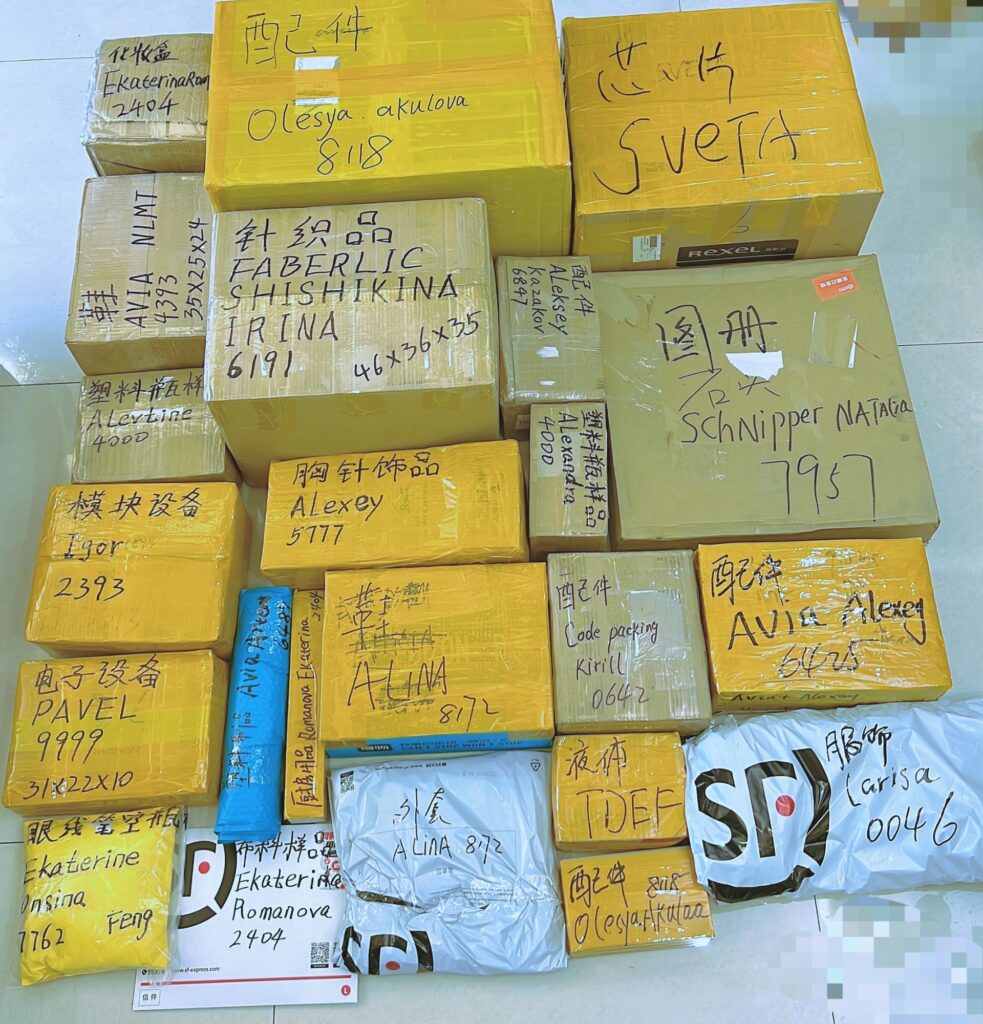 化妆盒
EkaterinaRom
2404
配件
Olesya.akulova
8118
芯片
SVETA
Rexel
鞋
AVIA NLMT
4393
35x25x24
针织品
FABERLIC
SHISHIKINA
IRINA
6191
46x36x35
配件
Aleksey
Kazakov
6847
图册
SCHNIPPER NATAlia
7957
塑料瓶样
Alevtine
4000
塑料瓶样品
Alexandra
4000
胸针饰品
Alexey
5777
模块设备
Igor
2393
Avia Artem
厨房用品 Romanova Ekaterina
2404
ALINA
8172
配件
Code packing
Kirill
0642
配件
Avia Alexey
6425
Avia Alexey
电子设备
PAVEL
9999
31x22x10
眼线笔空瓶
Ekaterine
Onsina
7762 Feng
布料样品
Ekaterina
Romanova
2404
www.sf-express.com
信件
外套
ALINA 8172
SF
液体
TDEF
配件 8118
Olesya.Akulaa
SF
服饰
Larisa
0046